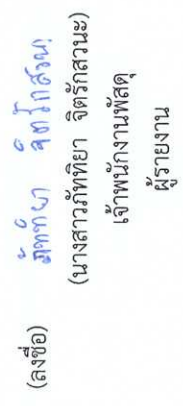 (ลงชื่อ) ภัททิยา จิตรักสวนะ
(นางสาวภัททิยา จิตรักสวนะ)
เจ้าพนักงานพัสดุ
ผู้รายงาน